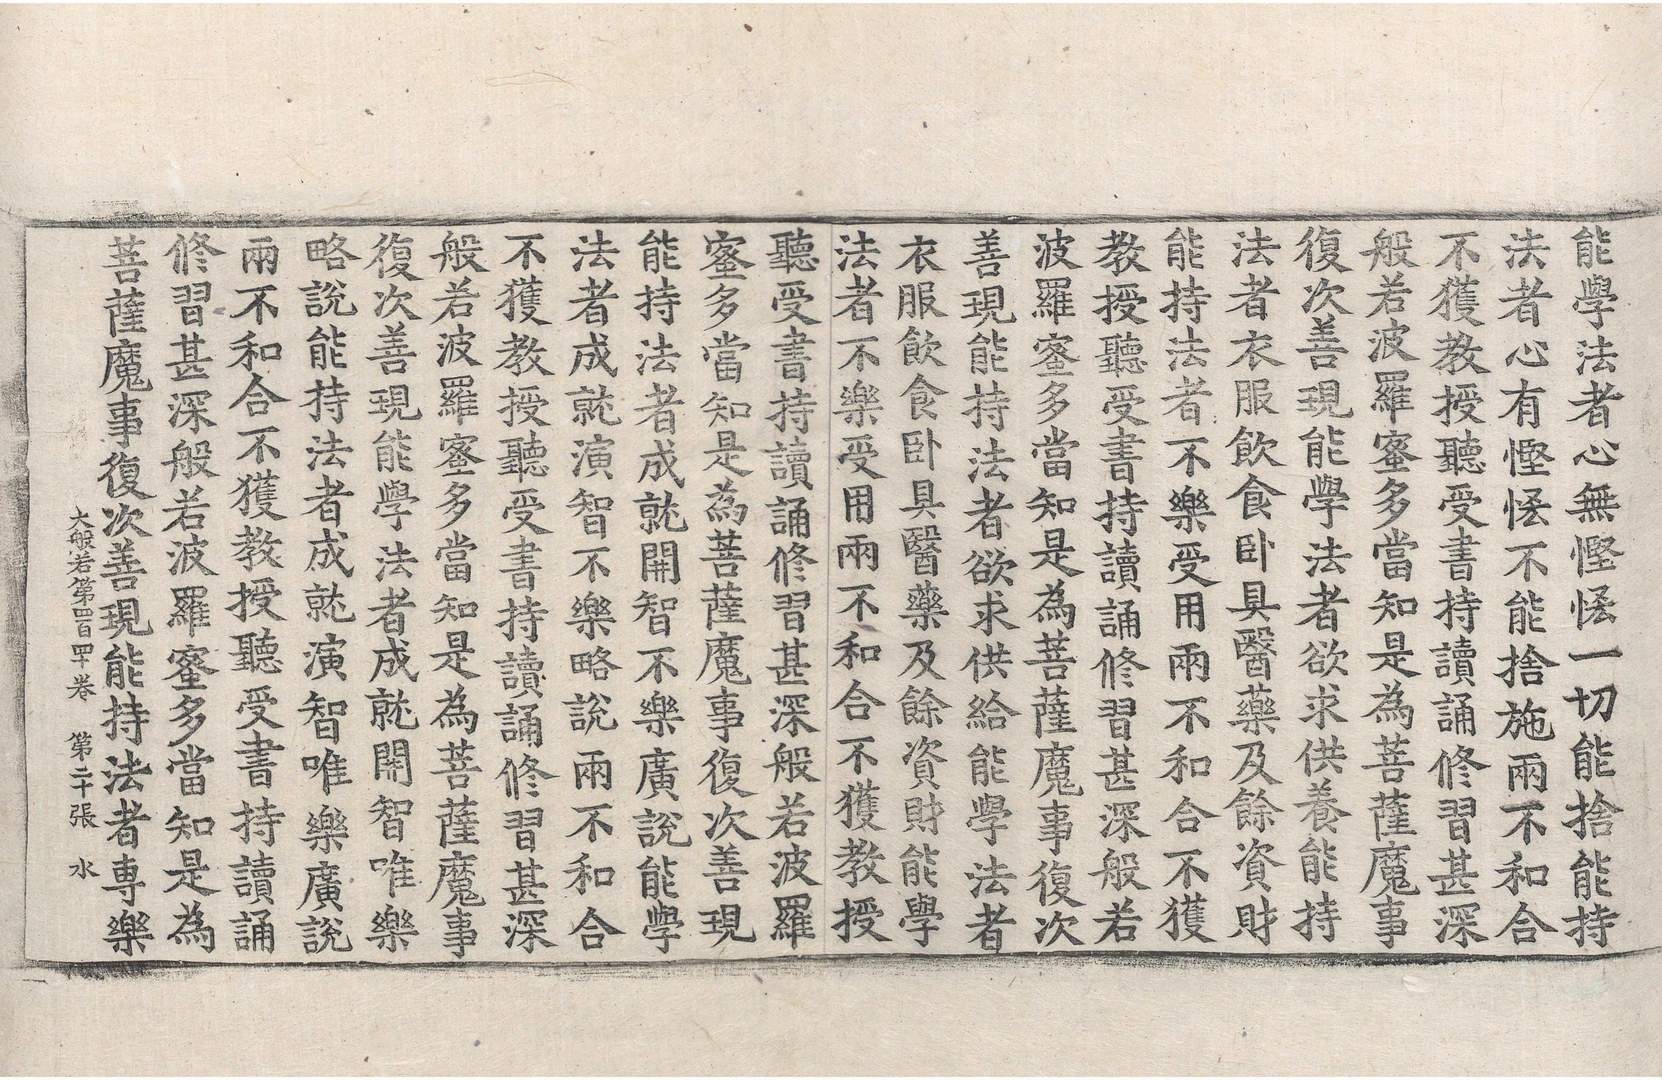 能學法者心無慳悋一切能捨能持
法者心有慳悋不能捨施兩不和合
不獲教授聽受書持讀誦修習甚深
般若波羅蜜多當知是為菩薩魔事
復次善現能學法者欲求供養能持
法者衣服飲食卧具醫藥及餘資財
能持法者不樂受用兩不和合不獲
教授聽受書持讀誦修習甚深般若
波羅蜜多當知是為菩薩魔事復次
善現能持法者欲求供給能學法者
衣服飲食卧具醫藥及餘資財能學
法者不樂受用兩不和合不獲教授
聽受書持讀誦修習甚深般若波羅
蜜多當知是為菩薩魔事復次善現
能持法者成就開智不樂廣說能學
法者成就演智不樂略說兩不和合
不獲教授聽受書持讀誦修習甚深
般若波羅蜜多當知是為菩薩魔事
復次善現能學法者成就開智唯樂
略說能持法者成就演智唯樂廣說
兩不和合不獲教授聽受書持讀誦
修習甚深般若波羅蜜多當知是為
菩薩魔事復次善現能持法者專樂
大般若第四百四十卷 第二十張 水